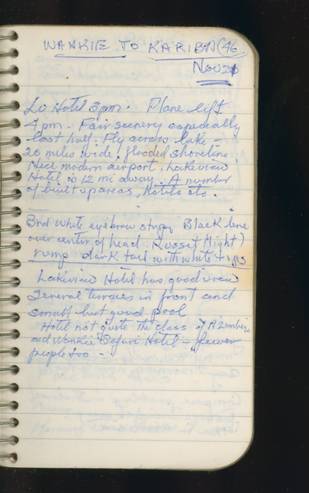 WANKIE TO KARIBA
Nov 26
Lv Hotel 3pm. Plane left
4pm. Fair scenery especially
last half. Fly across lake -
20 miles wide, flooded shoreline.
Nice modern airport. Lakeview
Hotel is 12 mi away. A number
of built up areas, hotels etc.
Bird white eyebrow stripe, Black line
over center of head. Russet (light)
rump dark tail with white tips
Lakeview Hotel has good view
Several terraces in front and
small but good pool
Hotel not quite the class of
and Wankie Safari Hotel - fewer
people too -